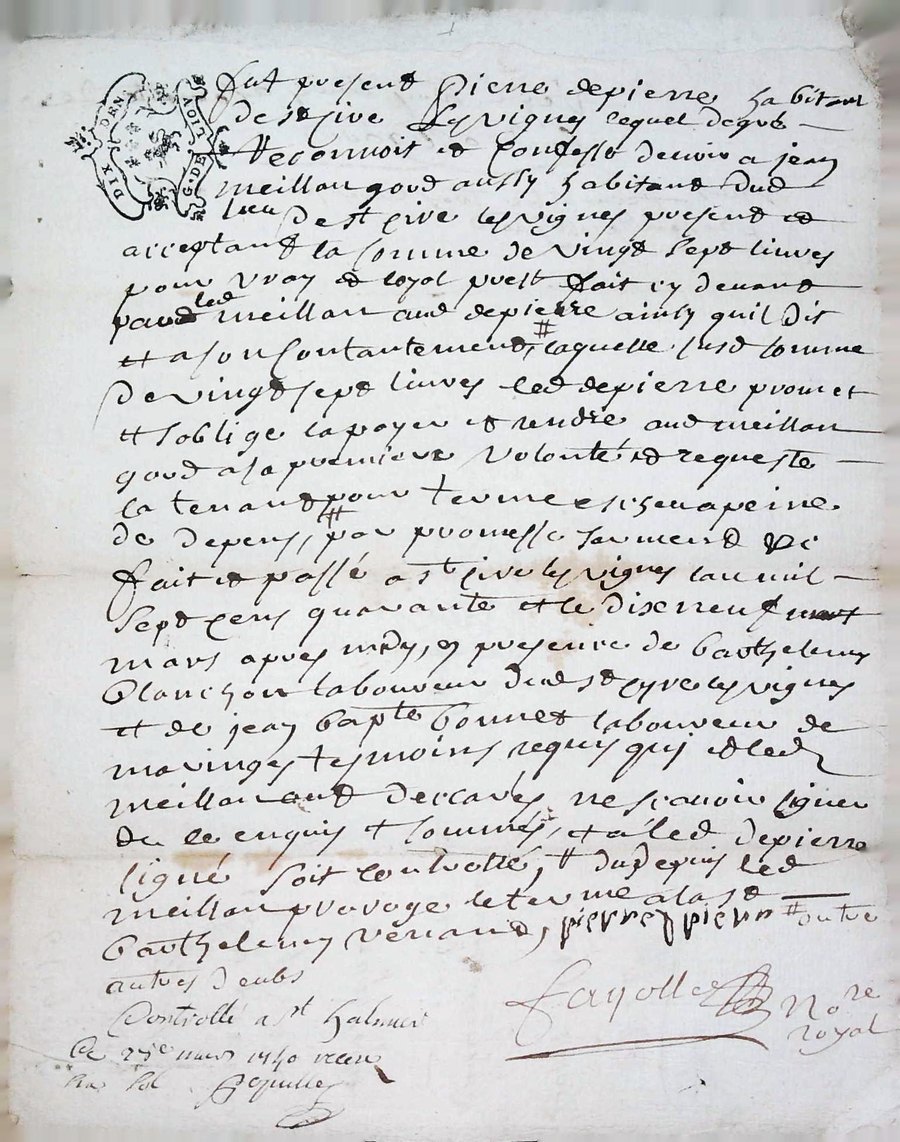 DIX DEN
G. DE LION
fut present Pierre depierre habitant
de st Cire les vignes lequel de gré
Reconnoit et Confesse devoir a jean
meillan goud aussy habitant dud
lieu de st cire les vignes present et
acceptant la somme de vingt sept livres
pour vray et loyal prest fait cy devant
par led meillan aud depierre ainsy quil dit
et a son Contantement, # laquelle susd somme
De vingt sept livres led depierre promet
et soblige la payer et rendre aud meillan
goud a sa premiere volonté et requeste
la tenant pour terme escheu a peine
de depens, # par promesse serment &c
fait et passé a st cire les vignes lan mil
sept cens quarante et le dixneuf
mars apres midy, en presence de barthelemy
blanchon laboureur dud st cyre les vignes
et de jean bapte bonnet laboureur de
maringes tesmoins requis qui et led
meillan ont declarés ne scavoir signer
de ce enquis et sommés, et a led depierre
signé soit controllé, # du depuis led
meillan proroge le terme a la st
barthelemy venant, pierre depierre # outre
autres deubs
Fayolle No re
royal
Controllé a st Galmier
Ce 25e mars 1740 receu
six sol